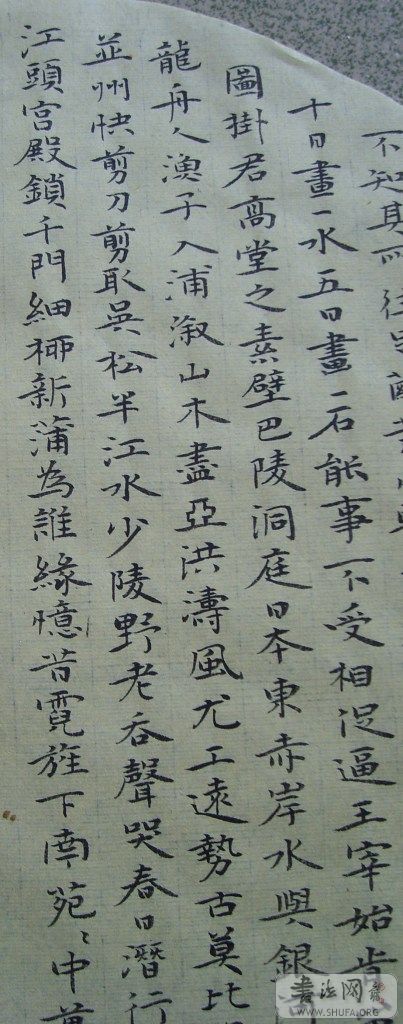 不知其所往
十日畫一水五日畫一石能事不受相促逼王宰始肯
圖掛君高堂之素壁巴陵洞庭日本東赤岸水與銀
龍舟人漁子入浦溆山木盡亞洪濤風尤工遠勢古莫比
並州快剪刀剪取吳松半江水少陵野老吞聲哭春日潛行
江頭宮殿鎖千門細柳新蒲為誰緣憶昔霓旌下南苑〻中萬
书法网
WWW.SHUFA.ORG